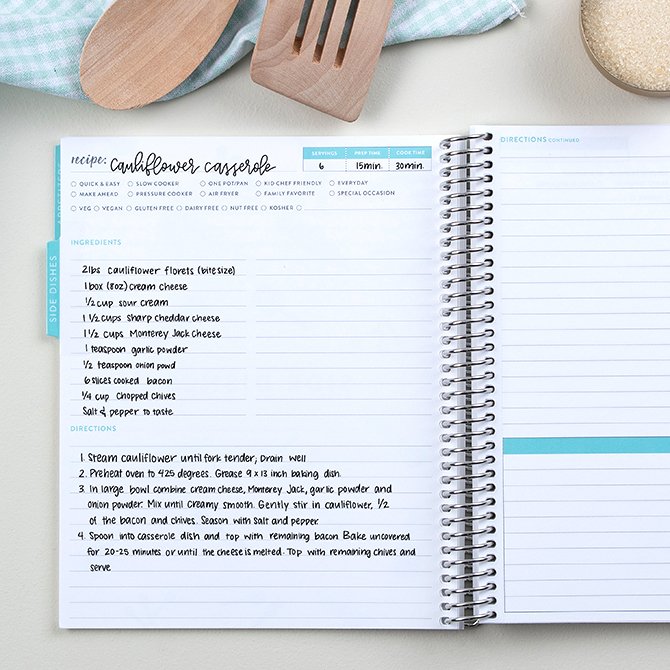 DIRECTIONS CONTINUED
recipe: Cauliflower Casserole
SERVINGS PREP TIME COOK TIME
6 15min. 30min.
QUICK & EASY SLOW COOKER ONE POT/PAN KID CHEF FRIENDLY EVERYDAY
MAKE AHEAD PRESSURE COOKER AIR FRYER FAMILY FAVORITE SPECIAL OCCASION
VEG VEGAN GLUTEN FREE DAIRY FREE NUT FREE KOSHER
APPETIZERS
SIDE DISHES
INGREDIENTS
2lbs cauliflower florets (bite size)
1 box (8oz) cream cheese
1/2 cup sour cream
1 1/2 cups sharp cheddar cheese
1 1/2 cups Monterey Jack Cheese
1 teaspoon garlic powder
1/2 teaspoon onion powd
6 slices cooked bacon
1/4 cup chopped chives
Salt & pepper to taste
DIRECTIONS
1. Steam cauliflower until fork tender; Drain well
2. Preheat oven to 425 degrees. Grease 9 x 13 inch baking dish.
3. In large bowl combine cream cheese, Monterey Jack, garlic powder and
onion powder. Mix until creamy smooth. Gently stir in cauliflower, 1/2
of the bacon and chives. Season with salt and pepper.
4. Spoon into casserole dish and top with remaining bacon Bake uncovered
for 20-25 minutes or until the cheese is melted. Top with remaining chives and
serve